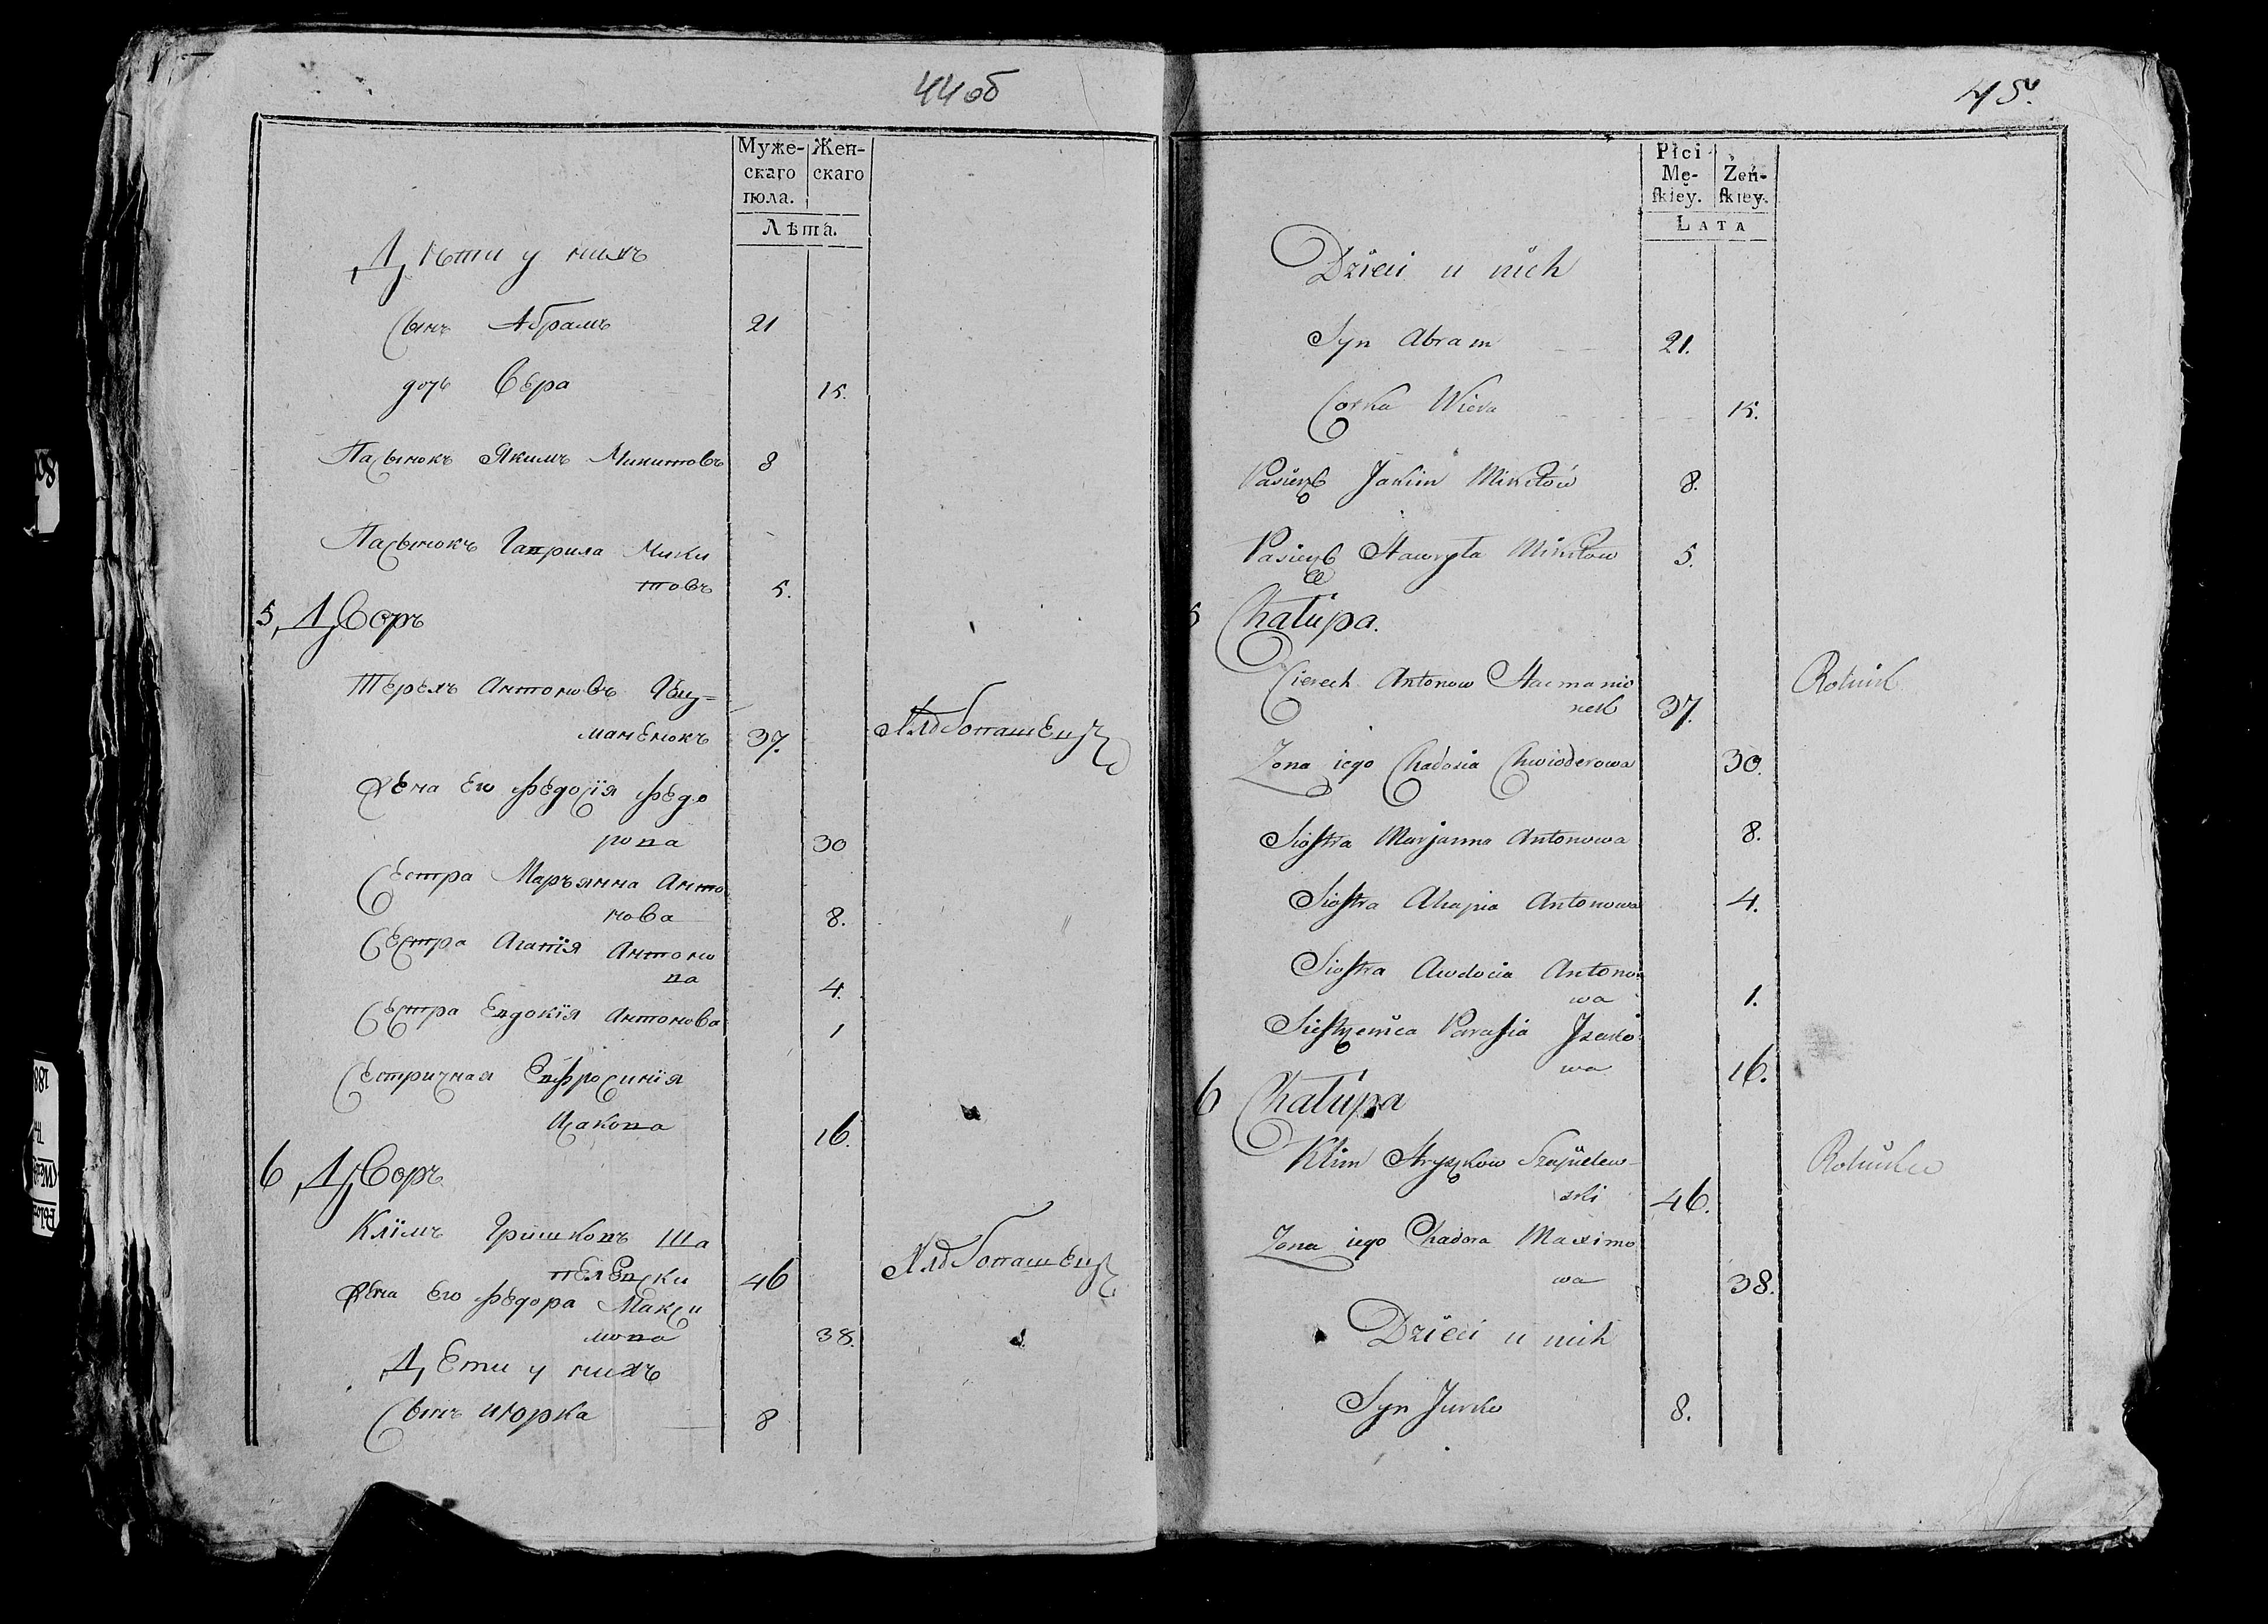 44 об
Муже-
скаго
пола.
Жен-
скаго
Лѣта.
Дѣти у нихъ
Сынъ Абрамъ 21
дочь Вера 15.
Пасынокъ Якимъ Микитовъ 8
Пасынокъ Гаврила Мики
товъ 5.
5, Дворъ
Терехъ Антоновъ
маненокъ 37. Хлѣбопашецъ
Жена Его Федосїя Федо
рова 30
Сестра Маръянна Анто
нова 8.
Сестра Агапїя Антоно
ва 4.
Сестра Евдокїя Антонова 1
Сестричная Евфросинїя
Исакова 16.
6 Дворъ
Клїмъ Гришковъ Ша
пелевски 46 Хлѣбопашецъ
Жена Его Федора Макси
мова 38.
Дети у нихъ
Сынъ Июрка 8
45.
Płci
Mę-
skiey.
Żeń-
skiey.
LATA
Dzieci u nich
Syn Abram 21.
Corka Wiera 15.
Pasierb Jakim Mikitow 8.
Pasierb Hawryła Mikitow 5.
5 Chałupa.
Cierech Antonow Hacmanio
nek 37. Rolnik
Zona iego Chadosia Chwioderowa 30.
Siostra Marjanna Antonowa 8.
Siostra Ahapia Antonowa 4.
Siostra Awdocia Antono-
wa 1.
Siestrzenica Parasia Jzako
wa 16.
6 Chałupa
Klim Hryszkow Szapielew-
ski 46. Rolnik
Zona iego Chadora Maximo
wa 38.
Dzieci u nich
Syn Jurko 8.